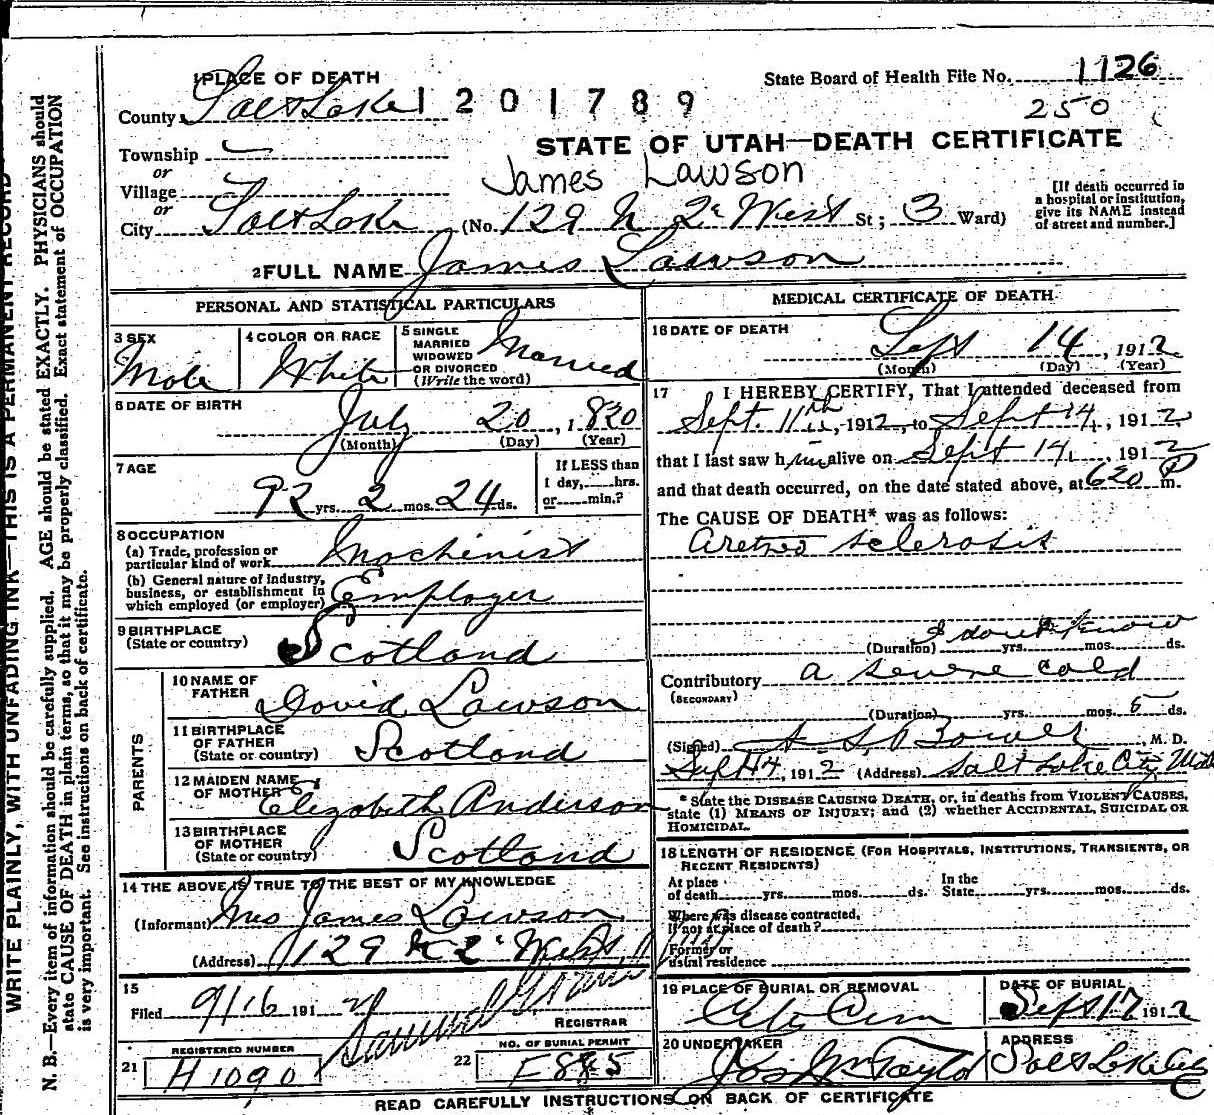 1 PLACE OF DEATH
State Board of Health File No. 1126
County Salt Lake 1201789
250
STATE OF UTAH—DEATH CERTIFICATE
Township
or
James Lawson
Village
or
City Salt Lake (No. 129 N 2d West St; 3 Ward)
[If death occurred in
a hospital or institution,
give its NAME instead
of street and number.]
2 FULL NAME James Lawson
PERSONAL AND STATISTICAL PARTICULARS
3 SEX
Male
4 COLOR OR RACE
White
5 SINGLE
MARRIED
WIDOWED
OR DIVORCED
(Write the word)
Married
6 DATE OF BIRTH
July 20, 1820
(Month) (Day) (Year)
7 AGE
92 yrs. 2 mos. 24 ds.
If LESS than
1 day, hrs.
or min.?
8 OCCUPATION
(a) Trade, profession or
particular kind of work Machinist
(b) General nature of industry,
business, or establishment in
which employed (or employer) Employer
9 BIRTHPLACE
(State or country) Scotland
PARENTS
10 NAME OF
FATHER David Lawson
11 BIRTHPLACE
OF FATHER
(State or country) Scotland
12 MAIDEN NAME
OF MOTHER Elizabeth Anderson
13 BIRTHPLACE
OF MOTHER
(State or country) Scotland
14 THE ABOVE IS TRUE TO THE BEST OF MY KNOWLEDGE
(Informant) Mrs James Lawson
(Address) 129 N 2d West
15
Filed 9/16 191
REGISTRAR
REGISTERED NUMBER
21 H1090
NO. OF BURIAL PERMIT
22 E885
MEDICAL CERTIFICATE OF DEATH
16 DATE OF DEATH
Sept 14, 1912
(Month) (Day) (Year)
17 I HEREBY CERTIFY, That I attended deceased from
Sept. 11th, 1912, to Sept 14, 1912,
that I last saw him alive on Sept 14, 1912
and that death occurred, on the date stated above, at 620 P m.
The CAUSE OF DEATH* was as follows:
sclerosis
I don't know
(Duration) yrs. mos. ds.
Contributory a severe cold
(SECONDARY)
(Duration) yrs. mos. 5 ds.
(Signed) Bower, M. D.
Sept 14, 1912 (Address) Salt Lake City Utah
* State the DISEASE CAUSING DEATH, or, in deaths from VIOLENT CAUSES,
state (1) MEANS OF INJURY; and (2) whether ACCIDENTAL, SUICIDAL OR
HOMICIDAL.
18 LENGTH OF RESIDENCE (FOR HOSPITALS, INSTITUTIONS, TRANSIENTS, OR
RECENT RESIDENTS)
At place
of death yrs. mos. ds.
In the
State yrs. mos. ds.
Where was disease contracted,
if not at place of death?
Former or
usual residence
19 PLACE OF BURIAL OR REMOVAL
City Cem
DATE OF BURIAL
Sept 17 1912
20 UNDERTAKER
Jos Wm Taylor
ADDRESS
Salt Lake City
READ CAREFULLY INSTRUCTIONS ON BACK OF CERTIFICATE
WRITE PLAINLY, WITH UNFADING INK—THIS IS A PERMANENT RECORD
N. B.—Every item of information should be carefully supplied. AGE should be stated EXACTLY. PHYSICIANS should
state CAUSE OF DEATH in plain terms, so that it may be properly classified. Exact statement of OCCUPATION
is very important. See instructions on back of certificate.